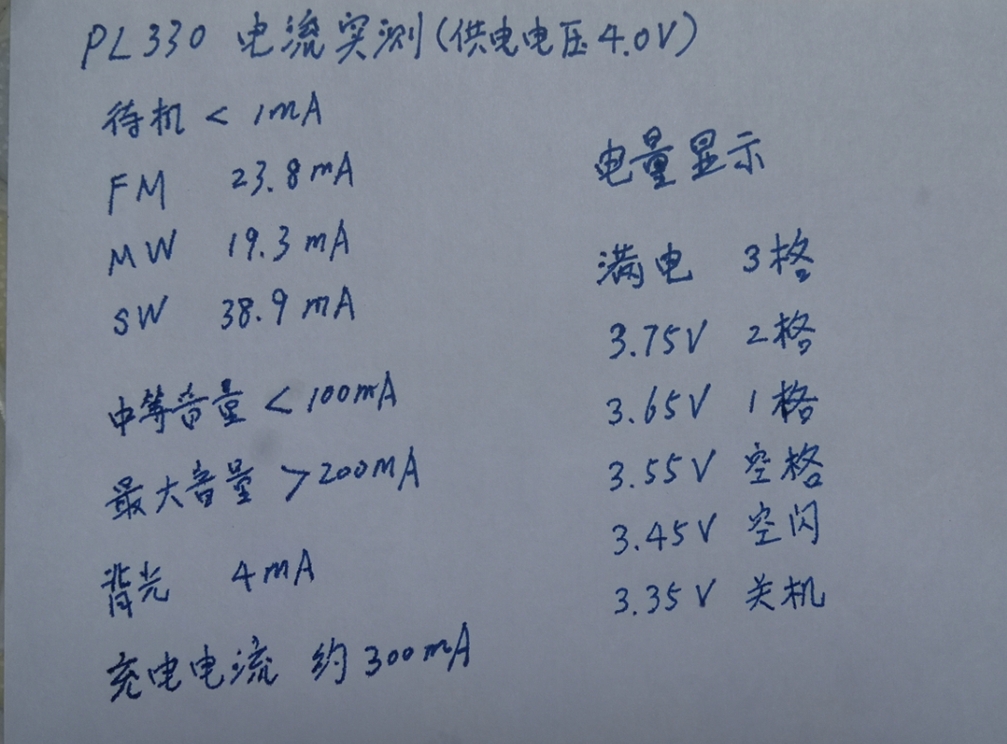 PL330 电流实测(供电电压4.0V)
待机 < 1mA
FM 23.8mA
MW 19.3mA
SW 38.9mA
中等音量 < 100mA
最大音量 > 200mA
背光 4mA
充电电流 约300mA
电量显示
满电 3格
3.75V 2格
3.65V 1格
3.55V 空格
3.45V 空闪
3.35V 关机